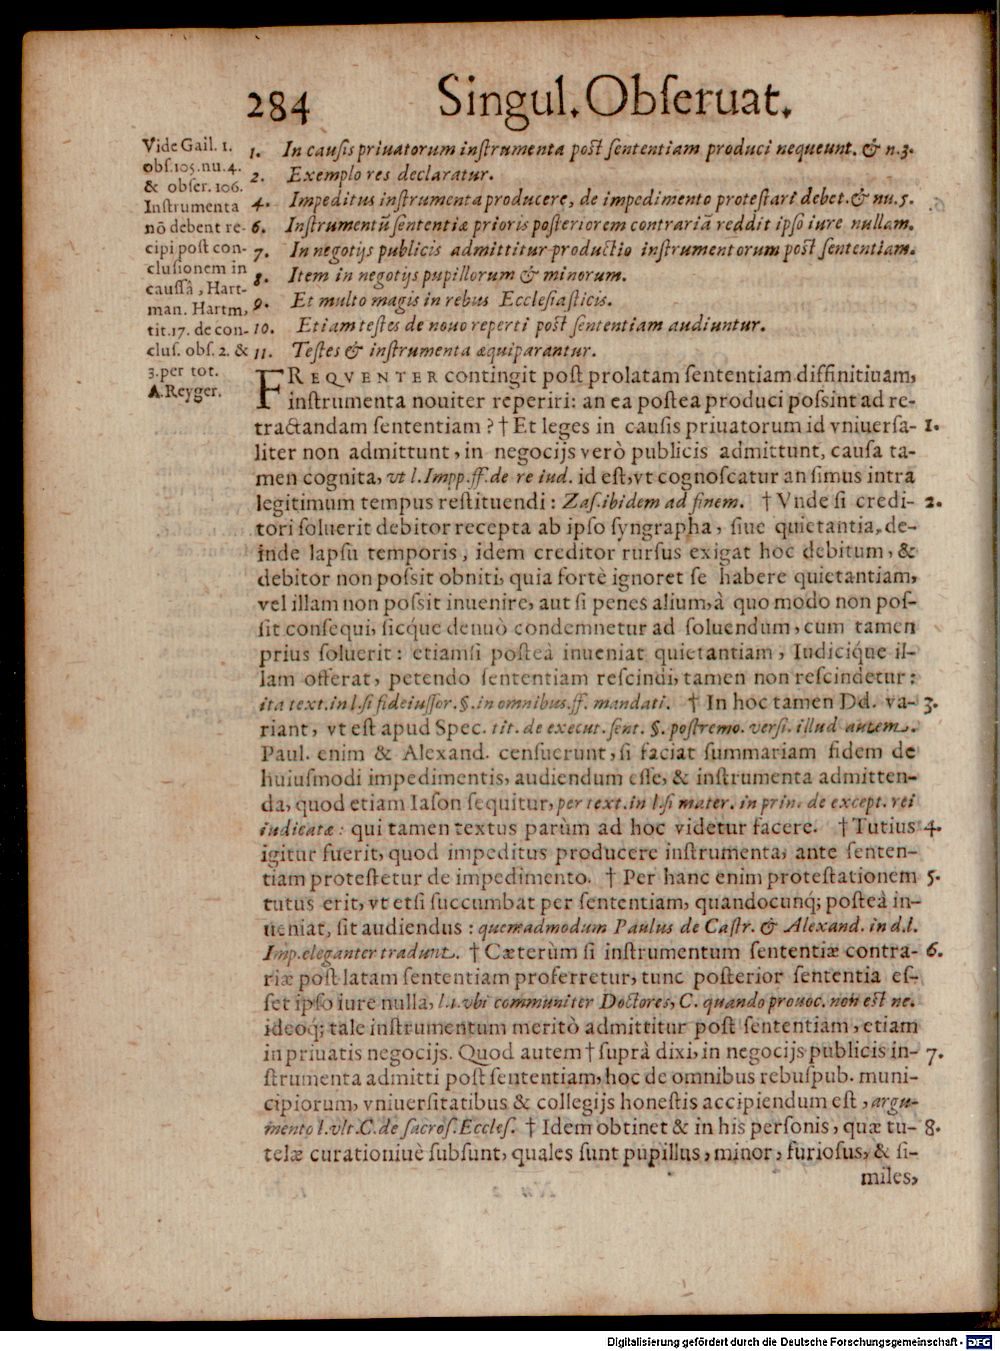 284 Singul. Obſeruat.
Vide Gail. 1.
obſ. 105. nu. 4.
& obſer. 106.
Inſtrumenta
nõ debent re-
cipi poſt con-
cluſionem in
cauſſâ, Hart-
man. Hartm,
tit. 17. de con-
cluſ. obſ. 2. &
3. per tot.
A. Reyger.
1. In cauſis priuatorum inſtrumenta poſt ſententiam produci nequeunt. & n. 3.
2. Exemplo res declaratur.
4. Impeditus inſtrumenta producere, de impedimento proteſtari debet. & nu. 5.
6. Inſtrumentũ ſententiæ prioris poſteriorem contrariã reddit ipſo iure nullam.
7. In negotijs publicis admittitur productio inſtrumentorum poſt ſententiam.
8. Item in negotijs pupillorum & minorum.
9. Et multo magis in rebus Eccleſiaſticis.
10. Etiam teſtes de nouo reperti poſt ſententiam audiuntur.
11. Teſtes & inſtrumenta æquiparantur.
FREQVENTER contingit poſt prolatam ſententiam diffinitiuam,
inſtrumenta nouiter reperiri: an ea poſtea produci poſsint ad re-
tractandam ſententiam? † Et leges in cauſis priuatorum id vniuerſa- 1.
liter non admittunt, in negocijs verò publicis admittunt, cauſa ta-
men cognita, vt l. Impp. ff. de re iud. id eſt, vt cognoſcatur an ſimus intra
legitimum tempus reſtituendi: Zaſ. ibidem ad finem. † Vnde ſi credi- 2.
tori ſoluerit debitor recepta ab ipſo ſyngrapha, ſiue quietantia, de-
inde lapſu temporis, idem creditor rurſus exigat hoc debitum, &
debitor non poſsit obniti, quia fortè ignoret ſe habere quietantiam,
vel illam non poſsit inuenire, aut ſi penes alium, à quo modo non poſ-
ſit conſequi, ſicq́ue denuò condemnetur ad ſoluendum, cum tamen
prius ſoluerit: etiamſi poſteà inueniat quietantiam, Iudiciq́ue il-
lam offerat, petendo ſententiam reſcindi, tamen non reſcindetur:
ita text. in l. ſi fideiuſſor. §. in omnibus. ff. mandati. † In hoc tamen Dd. va- 3.
riant, vt eſt apud Spec. tit. de execut. ſent. §. poſtremo. verſi. illud autem.
Paul. enim & Alexand. cenſuerunt, ſi faciat ſummariam fidem de
huiuſmodi impedimentis, audiendum eſſe, & inſtrumenta admitten-
da, quod etiam Iaſon ſequitur, per text. in l. ſi mater. in prin. de except. rei
iudicatæ: qui tamen textus parùm ad hoc videtur facere. † Tutius 4.
igitur fuerit, quod impeditus producere inſtrumenta, ante ſenten-
tiam proteſtetur de impedimento. † Per hanc enim proteſtationem 5.
tutus erit, vt etſi ſuccumbat per ſententiam, quandocunq́; poſteà in-
ueniat, ſit audiendus: quemadmodum Paulus de Caſtr. & Alexand. in d. l.
Imp. eleganter tradunt. † Cæterùm ſi inſtrumentum ſententiæ contra- 6.
riæ poſt latam ſententiam proferretur, tunc poſterior ſententia eſ-
ſet ipſo iure nulla, l. 1. vbi communiter Doctores, C. quando prouoc. non eſt ne.
ideoq́; tale inſtrumentum meritò admittitur poſt ſententiam, etiam
in priuatis negocijs. Quod autem † ſuprà dixi, in negocijs publicis in- 7.
ſtrumenta admitti poſt ſententiam, hoc de omnibus rebuſpub. muni-
cipiorum, vniuerſitatibus & collegijs honeſtis accipiendum eſt, argu-
mento l. vlt. C. de ſacroſ. Eccleſ. † Idem obtinet & in his perſonis, quæ tu- 8.
telæ curationiuè ſubſunt, quales ſunt pupillus, minor, furioſus, & ſi-
miles,
Digitalisierung gefördert durch die Deutsche Forschungsgemeinschaft - DFG